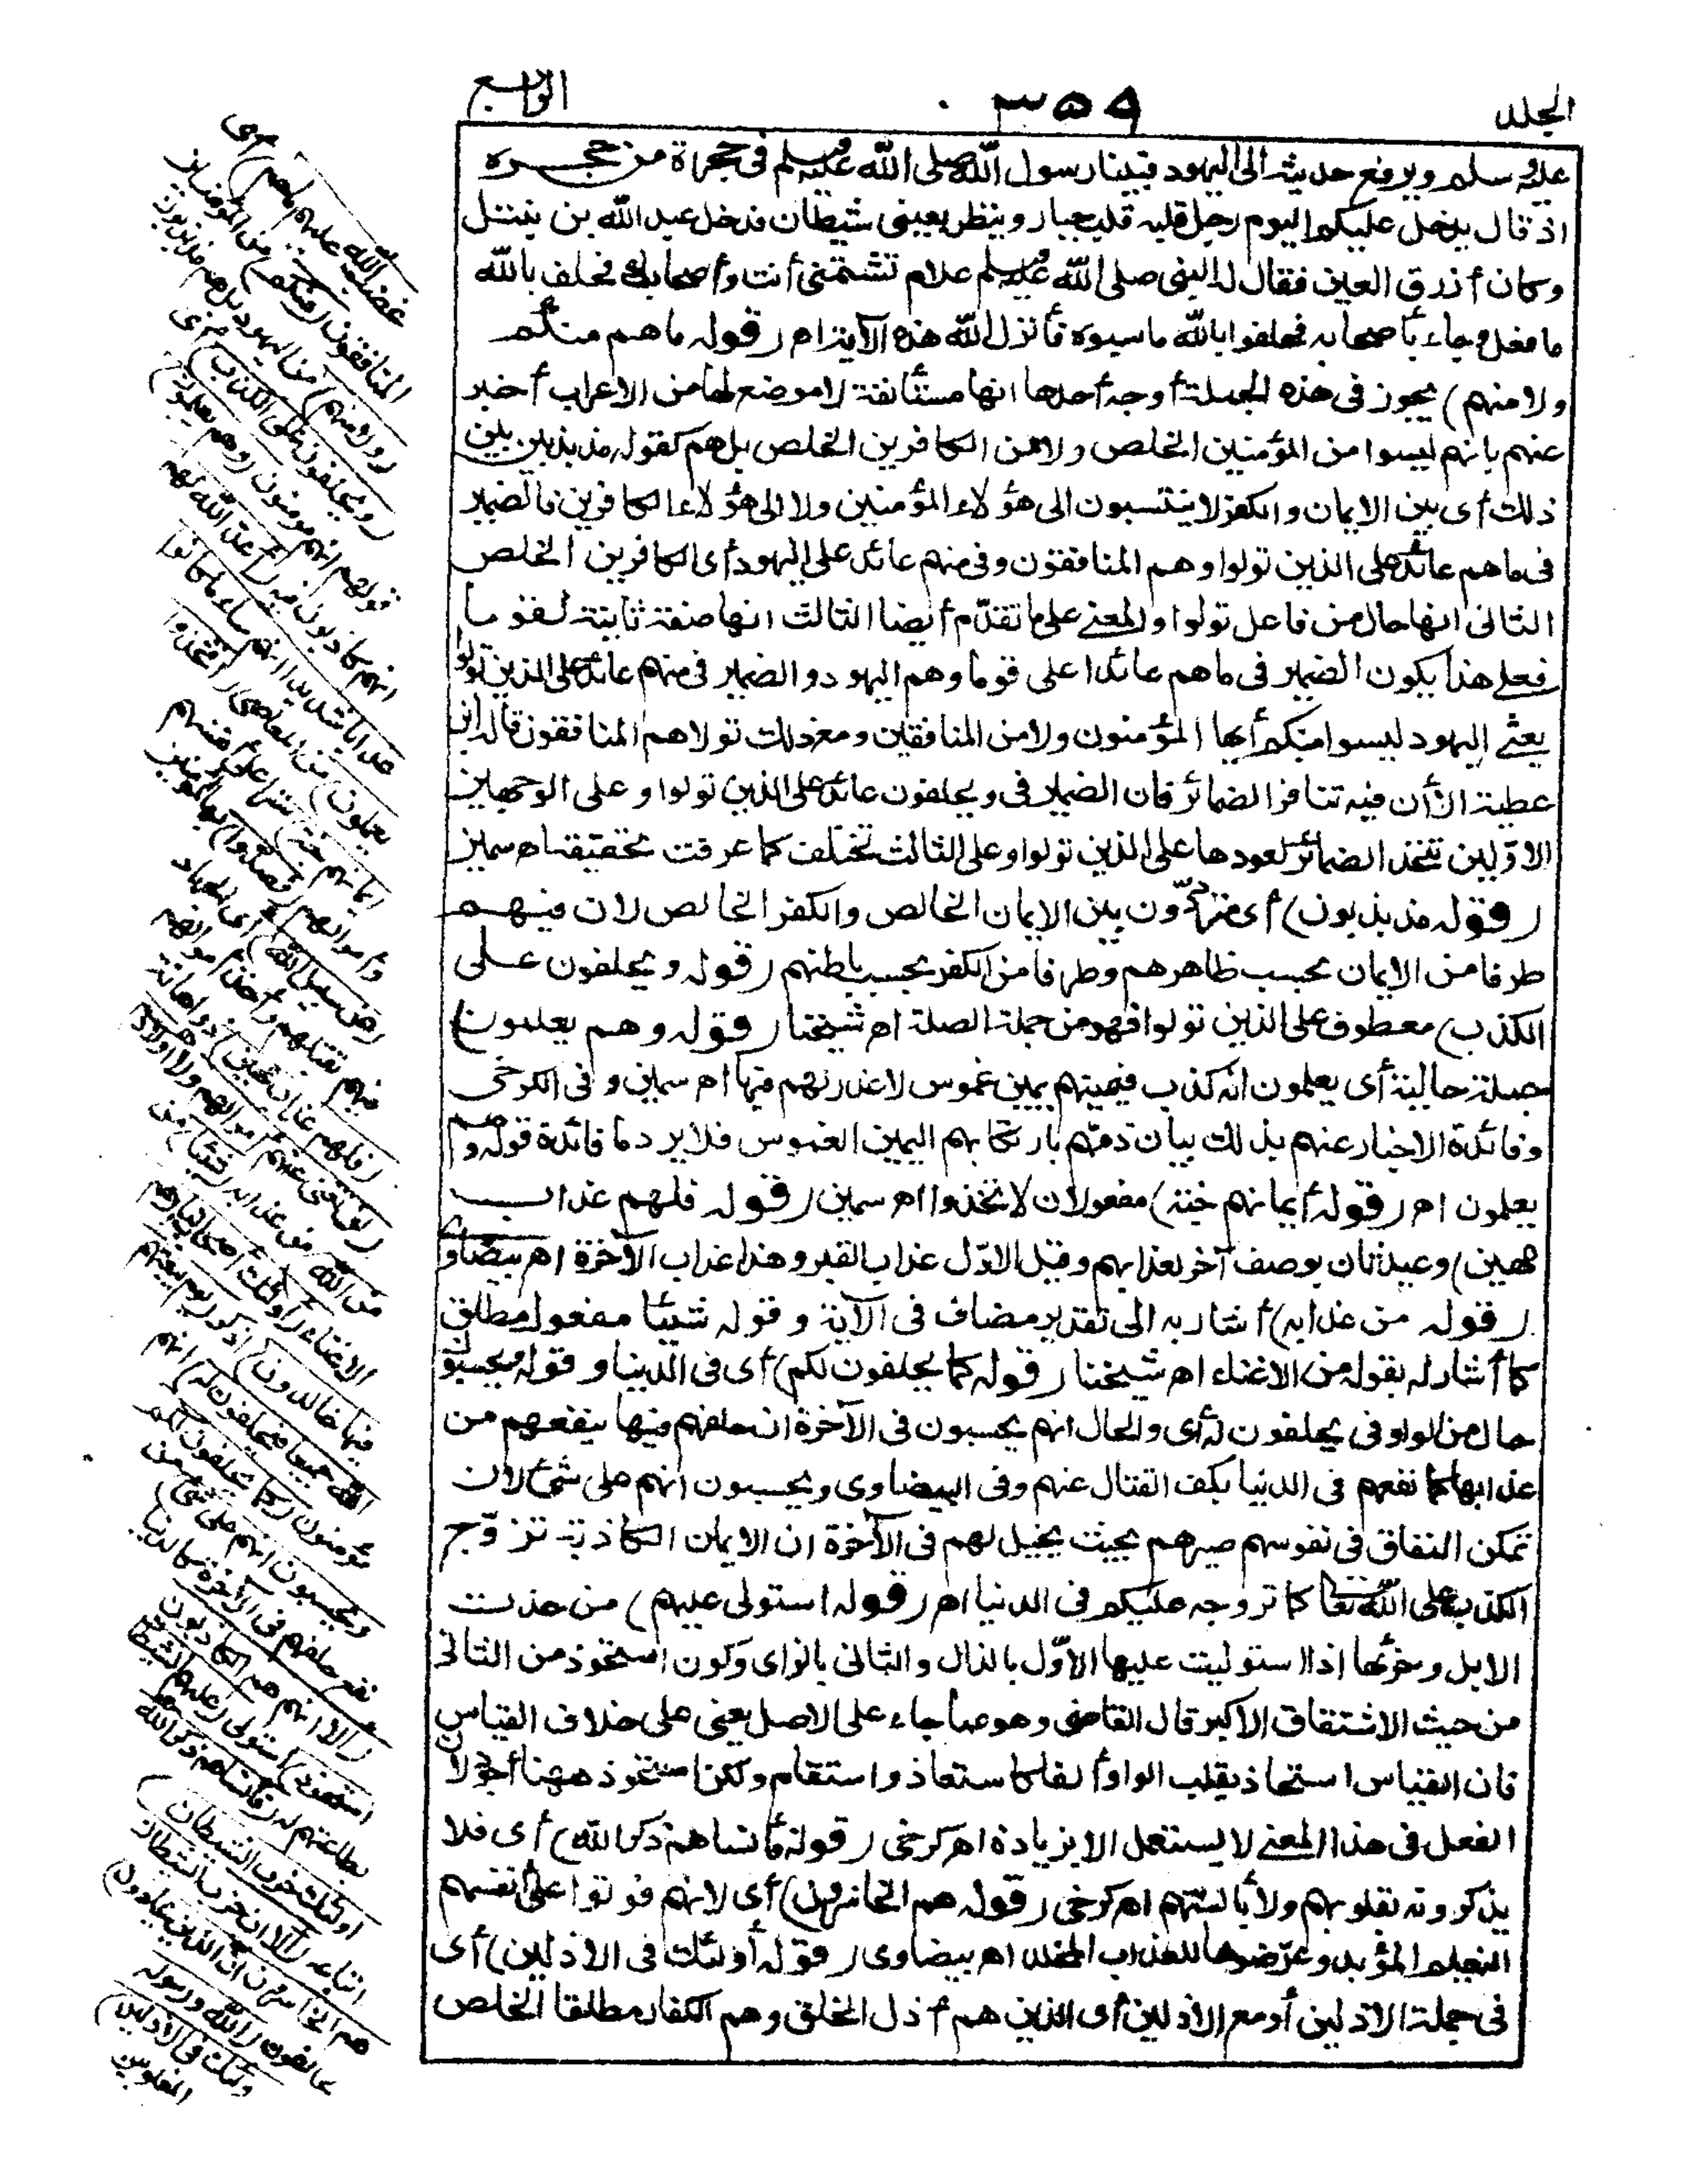 الجلد
٣٥٩
الرابع
عليه وسلم ويرفع حديثه الى اليهود فبينا رسول الله صلى الله عليه وسلم فى حجرة من حجره
اذ قال يدخل عليكم اليوم رجل قلبه قلب جبار وينظر بعينى شيطان فدخل عبد الله بن نبتل
وكان أزرق العين فقال له النبى صلى الله عليه وسلم علام تشتمنى أنت وأصحابك فحلف بالله
ما فعل وجاء بأصحابه فحلفوا بالله ما سبوه فأنزل الله هذه الآية اه (قوله ما هم منكم
ولا منهم) يجوز فى هذه الجملة أوجه أحدها انها مستأنفة لا موضع لها من الاعراب أخبر
عنهم بانهم ليسوا من المؤمنين الخلص ولا من الكافرين الخلص بل هم كقوله مذبذبين بين
ذلك أى بين الايمان والكفر لا ينتسبون الى هؤلاء المؤمنين ولا الى هؤلاء الكافرين فالضمير
فى ما هم عائد على الذين تولوا وهم المنافقون وفى منهم عائد على اليهود أى الكافرين الخلص
الثانى انها حال من فاعل تولوا والمعنى على ما تقدم أيضا الثالث انها صفة ثانية لقوما
فعلى هذا يكون الضمير فى ما هم عائدا على قوما وهم اليهود والضمير فى منهم عائد على الذين تولوا
يعنى اليهود ليسوا منكم أيها المؤمنون ولا من المنافقين ومع ذلك تولاهم المنافقون قاله ابن
عطية الا أن فيه تنافر الضمائر فان الضمير فى ويحلفون عائد على الذين تولوا وعلى الوجهين
الاوّلين تتحد الضمائر لعودها على الذين تولوا وعلى الثالث تختلف كما عرفت تحقيقه اه سمين
(قوله مذبذبون) أى مترددون بين الايمان الخالص والكفر الخالص لان فيهم
طرفا من الايمان بحسب ظاهرهم وطرفا من الكفر بحسب باطنهم (قوله ويحلفون على
الكذب) معطوف على الذين تولوا فهو من جملة الصلة اه شيخنا (قوله وهم يعلمون)
جملة حالية أى يعلمون انه كذب فيمينهم يمين غموس لا عذر لهم فيها اه سمين وفى الكرخى
وفائدة الاخبار عنهم بذلك بيان ذمهم بارتكابهم اليمين الغموس فلا يرد ما فائدة قوله وهم
يعلمون اه (قوله أيمانهم جنة) مفعولان لاتخذوا اه سمين (قوله فلهم عذاب
مهين) وعيد ثان بوصف آخر لعذابهم وقيل الاوّل عذاب القبر وهذا عذاب الآخرة اه بيضاوى
(قوله من عذابه) أشار به الى تقدير مضاف فى الآية وقوله شيئا مفعول مطلق
كما أشار له بقوله من الاغناء اه شيخنا (قوله كما يحلفون لكم) أى فى الدنيا وقوله ويحسبون
حال من الواو فى يحلفون له أى والحال انهم يحسبون فى الآخرة ان حلفهم فيها ينفعهم من
عذابها كما نفعهم فى الدنيا بكف القتال عنهم وفى البيضاوى ويحسبون انهم على شئ لان
تمكن النفاق فى نفوسهم صيرهم بحيث يخيل لهم فى الآخرة ان الايمان الكاذبة تروّج
الكذب على الله تعالى كما تروجه عليكم فى الدنيا اه (قوله استولى عليهم) من حذت
الابل وحزتها اذا استوليت عليها الاوّل بالذال والثانى بالزاى وكون استحوذ من الثانى
من حيث الاشتقاق الاكبر قال القاضى وهو مما جاء على الاصل يعنى على خلاف القياس
فان القياس استحاذ بقلب الواو ألفا كاستعاذ واستقام ولكن استحوذ ههنا أجود لان
الفعل فى هذا المعنى لا يستعمل الا بزيادة اه كرخى (قوله فأنساهم ذكر الله) أى فلا
يذكرونه بقلوبهم ولا بألسنتهم اه كرخى (قوله هم الخاسرون) أى لانهم فوتوا على أنفسهم
النعيم المؤبد وعرّضوها للعذاب المخلد اه بيضاوى (قوله أولئك فى الاذلين) أى
فى جملة الاذلين أو مع الاذلين أى الذين هم أذل الخلق وهم الكفار مطلقا الخلص
غضب الله عليهم ما هم) أى
المنافقون (منكم) من المؤمنين
(ولا منهم) من اليهود بل هم مذبذبون
(ويحلفون على الكذب) أى
قولهم انهم مؤمنون (وهم يعلمون)
انهم كاذبون فيه (أعد الله لهم
عذابا شديدا انهم ساء ما كانوا
يعملون) من المعاصى (اتخذوا
أيمانهم جنة) سترا على أنفسهم
وأموالهم (فصدوا) بها المؤمنين
(عن سبيل الله) أى الجهاد
فيهم بقتلهم وأخذ أموالهم
(فلهم عذاب مهين) ذو اهانة
(لن تغنى عنهم أموالهم ولا أولادهم
من الله) من عذابه (شيئا) من
الاغناء (أولئك أصحاب النار هم
فيها خالدون) اذكر (يوم يبعثهم
الله جميعا فيحلفون له) انهم
مؤمنون (كما يحلفون لكم
ويحسبون انهم على شئ) من
نفع حلفهم فى الآخرة كالدنيا
(الا انهم هم الكاذبون
استحوذ) استولى (عليهم الشيطان)
بطاعتهم له (فأنساهم ذكر الله
أولئك حزب الشيطان)
اتباعه (ألا ان حزب الشيطان
هم الخاسرون ان الذين يحادون)
يخالفون (الله ورسوله
أولئك فى الاذلين)
المغلوبين